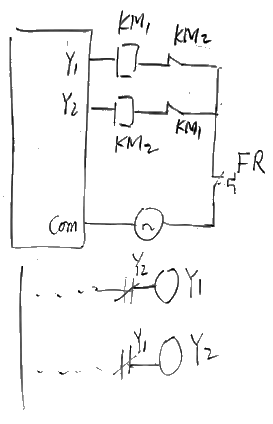 KM₁
KM₂
Y₁
Y₂
KM₁
KM₂
FR
Com
~
Y₂
Y₁
Y₁
Y₂